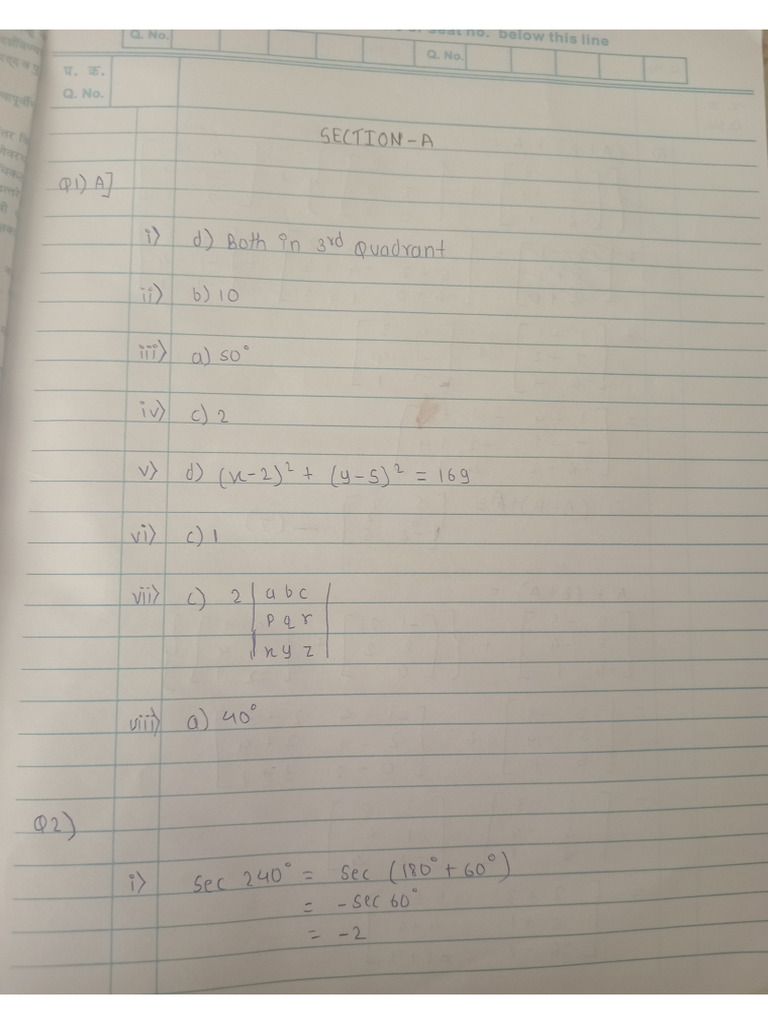 seat no. below this line
Q. No.
Q. No.
प्र. क्र.
Q. No.
SECTION-A
Q1) A]
i) d) Both in 3rd Quadrant
ii) b) 10
iii) a) 50°
iv) c) 2
v) d) (x-2)² + (y-5)² = 169
vi) c) 1
vii) c) 2 | a b c |
| p q r |
| x y z |
viii) a) 40°
Q2)
i) sec 240° = sec (180° + 60°)
= -sec 60°
= -2